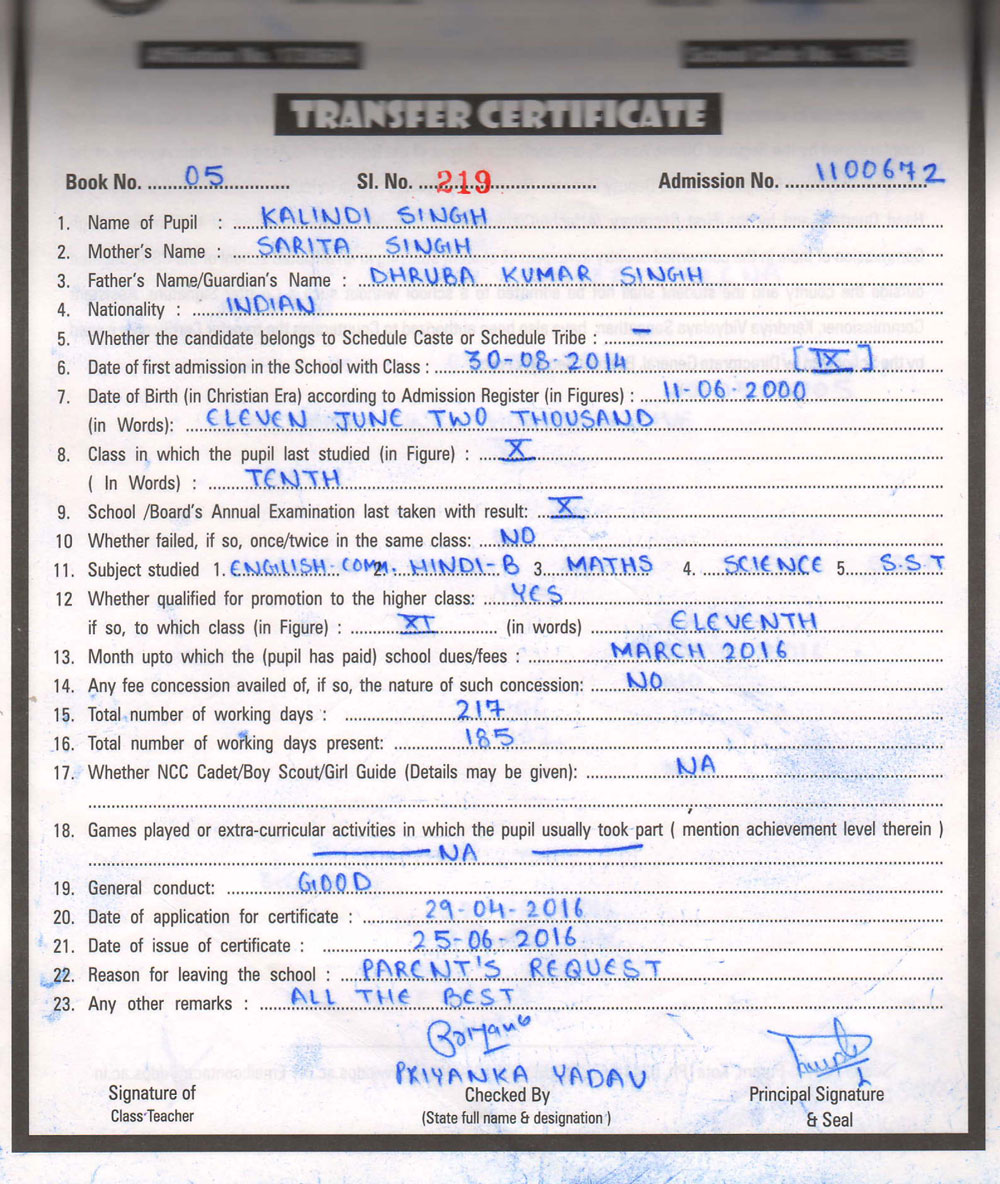 TRANSFER CERTIFICATE
Book No. 05 Sl. No. 219 Admission No. 1100672
1. Name of Pupil : KALINDI SINGH
2. Mother's Name : SARITA SINGH
3. Father's Name/Guardian's Name : DHRUBA KUMAR SINGH
4. Nationality : INDIAN
5. Whether the candidate belongs to Schedule Caste or Schedule Tribe : –
6. Date of first admission in the School with Class : 30-08-2014 [IX]
7. Date of Birth (in Christian Era) according to Admission Register (in Figures) : 11-06-2000
(in Words): ELEVEN JUNE TWO THOUSAND
8. Class in which the pupil last studied (in Figure) : X
( In Words) : TENTH
9. School /Board's Annual Examination last taken with result: X
10 Whether failed, if so, once/twice in the same class: NO
11. Subject studied 1. ENGLISH-COMM. 2. HINDI-B 3. MATHS 4. SCIENCE 5. S.S.T
12 Whether qualified for promotion to the higher class: YES
if so, to which class (in Figure) : XI (in words) ELEVENTH
13. Month upto which the (pupil has paid) school dues/fees : MARCH 2016
14. Any fee concession availed of, if so, the nature of such concession: NO
15. Total number of working days : 217
16. Total number of working days present: 185
17. Whether NCC Cadet/Boy Scout/Girl Guide (Details may be given): NA
18. Games played or extra-curricular activities in which the pupil usually took part ( mention achievement level therein )
NA
19. General conduct: GOOD
20. Date of application for certificate : 29-04-2016
21. Date of issue of certificate : 25-06-2016
22. Reason for leaving the school : PARENT'S REQUEST
23. Any other remarks : ALL THE BEST
PRIYANKA YADAV
Signature of Checked By Principal Signature
Class Teacher (State full name & designation ) & Seal